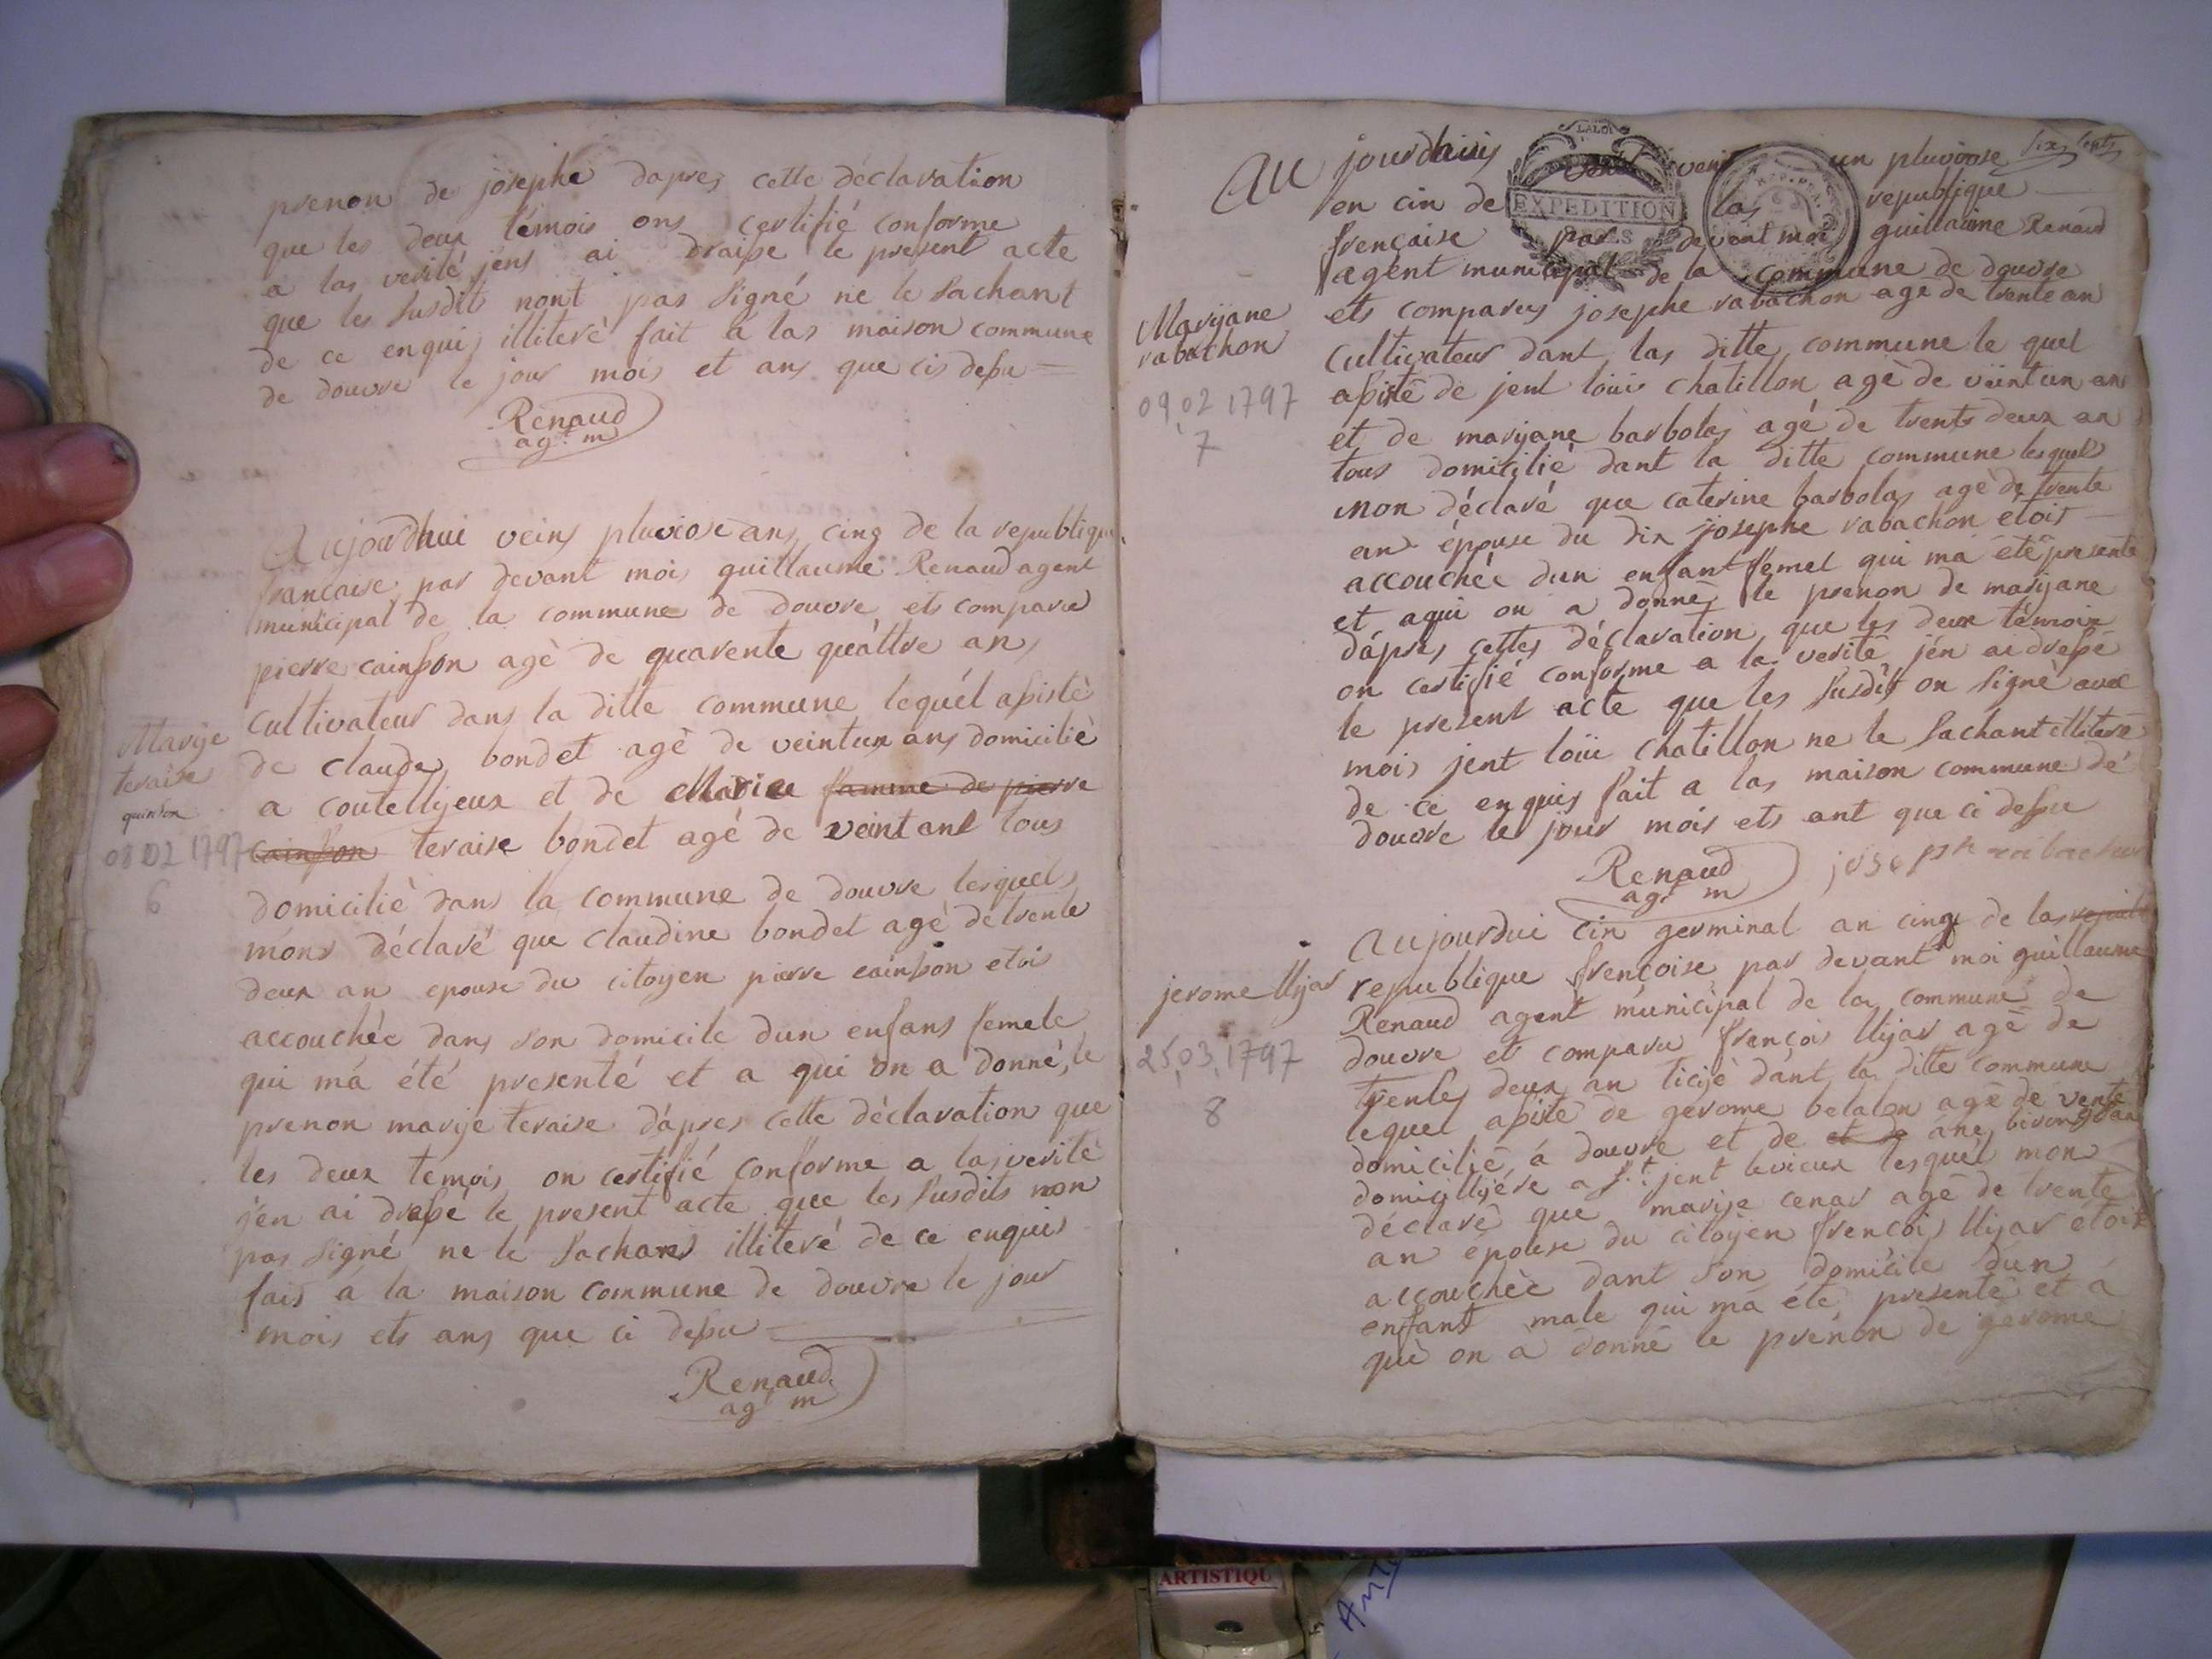 prenon de josephe dapres cette déclaration
que les deux témois ons certifié conforme
a las verité jens ai draisse le present acte
que les susdits nont pas signé ne le sachant
de ce enquis illiteré fait a las maison commune
de douvre le jour mois et ans que cis dessu
Renaud
agt m
Aujourdhui veins pluviose ans cinq de la republique
francaise par devant moi guillaume Renaud agent
municipal de la commune de douvre ets comparu
pierre cainsson agè de quarente quâttre ans
cultivateur dans la ditte commune lequél assistè
de claude bondet agè de veintun ans domiciliè
a coutellijeux et de Marie famme de pierre
cainsson teraise bondet agé de veint ant tous
domiciliè dans la commune de douvre lesquels
mons déclaré que claudine bondet agè de trente
deux an epouse du citoyen pierre cainsson etois
accouchée dans son domicile dun enfans femele
qui má été presenté et a qui on a donné, le
prenon marije teraise dápres cette dèclaration que
les deux témois on certifié conforme a las verité
j'en ai drassé le present acte que les susdits non
pas signé ne le sachans illiteré de ce enquis
fais a la maison commune de douvre le jour
mois ets ans que ci dessu
Renaud
agt m
Marije
teraise
quinson
08 02 1797
6
six sept
Au jourdhuis veint un pluviose
en cin de las republique
frençaise par devent moi guillaume Renaud
agent municipal de la commune de douvre
ets comparus josephe rabachon age de trente an
cultivateur dant las ditte commune le quel
assistè de jent loüis chatillon agè de veintun an
et de marijane barbolas agé de trente deux an
tous domicilié dant la ditte commune lesquels
mon déclaré que caterine barbolas agè de trente
an épouse du dix josephe rabachon étoit
accouchée dun enfant femel qui ma été presenté
et aqui on a donné le prenon de marijane
dápres cettes déclaration que les deux témoin
on certifié conforme a la verité jén ai dressé
le present acte que les susdits on signè avec
mois jent loüi chatillon ne le sachant illiteré
de ce enquis fait a las maison commune de
douvre le jour mois ets ant que ci dessu
Renaud
agt m
joseph rabachon
Marijane
rabachon
09 02 1797
7
Aujourdui cin germinal an cinq de las
republique frençoise par devant moi guillaume
Renaud agent municipal de la commune de
douvre et comparu françois llijar agè de
trente deux an ticijè dant la ditte commune
lequel assité de gérome belalon agè de vente
domicilié á douvre et de et de ane
domicillijére a st. jent levieux lesquél mon
déclaré que marije cenar agè de trente
an épouse du citoijen frençois llijar étois
accouchèe dant son domicile dun
enfant male qui ma été presenté et á
qui on a donné le prénon de gerome
jerome llijar
25 03 1797
8
LA LOI
EXPEDITION
ARTISTIQU